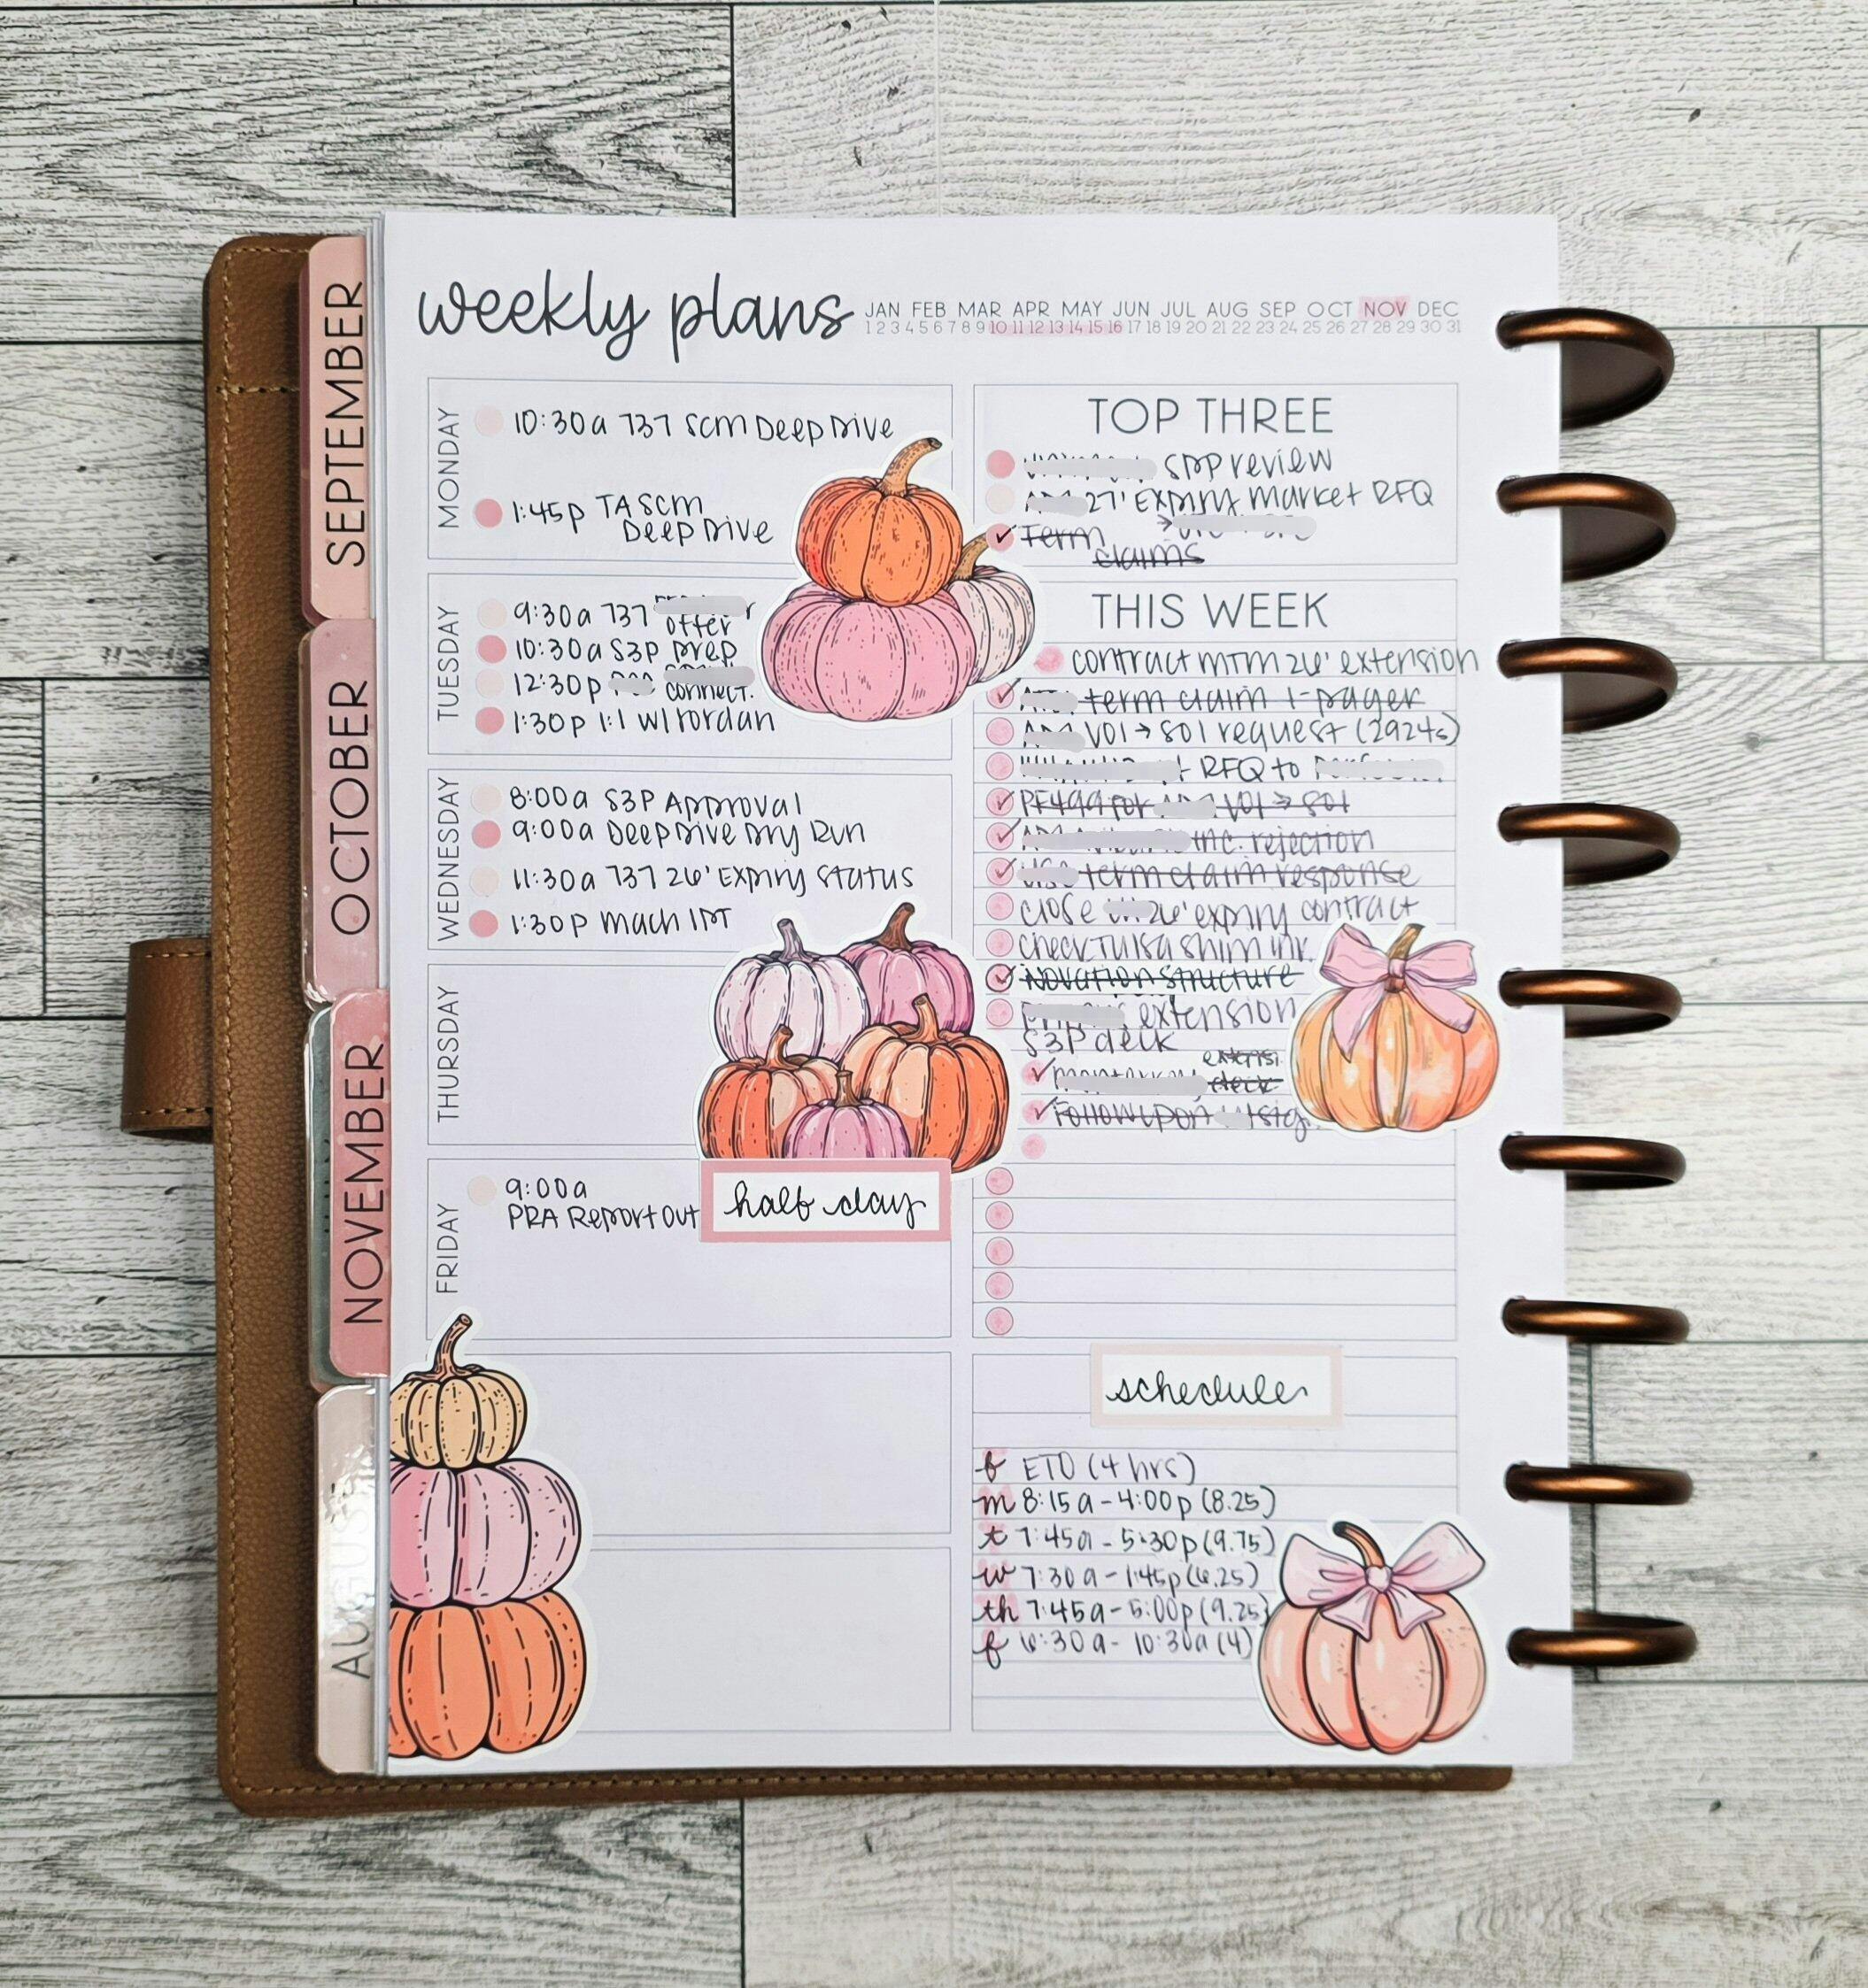 SEPTEMBER
OCTOBER
NOVEMBER
AUGUST
weekly plans
JAN FEB MAR APR MAY JUN JUL AUG SEP OCT NOV DEC
1 2 3 4 5 6 7 8 9 10 11 12 13 14 15 16 17 18 19 20 21 22 23 24 25 26 27 28 29 30 31
MONDAY
10:30a 737 SCM Deep Dive
1:45p TA SCM
Deep Dive
TUESDAY
9:30a 737
offer
10:30a S3P prep
12:30p connect.
1:30p 1:1 w/
WEDNESDAY
8:00a S3P Approval
9:00a Deep Dive Dry Run
11:30a 737 26' Expiry Status
1:30p Mach IPT
THURSDAY
FRIDAY
9:00a
PRA Report Out
half day
TOP THREE
SDP review
27' Expiry Market RFQ
Term
claims
THIS WEEK
contract MTM 26' extension
term claim 1-pager
V01 → S01 request (2924s)
RFQ to
PF499 for V01 → S01
inc. rejection
term claim response
close 26' expiry contract
check Tulsa shim inv.
Novation structure
extension
S3P deck
deck
Follow up on
schedule
f ETO (4 hrs)
m 8:15a - 4:00p (8.25)
t 7:45a - 5:30p (9.75)
w 7:30a - 1:45p (6.25)
th 7:45a - 5:00p (9.25)
f 6:30a - 10:30a (4)